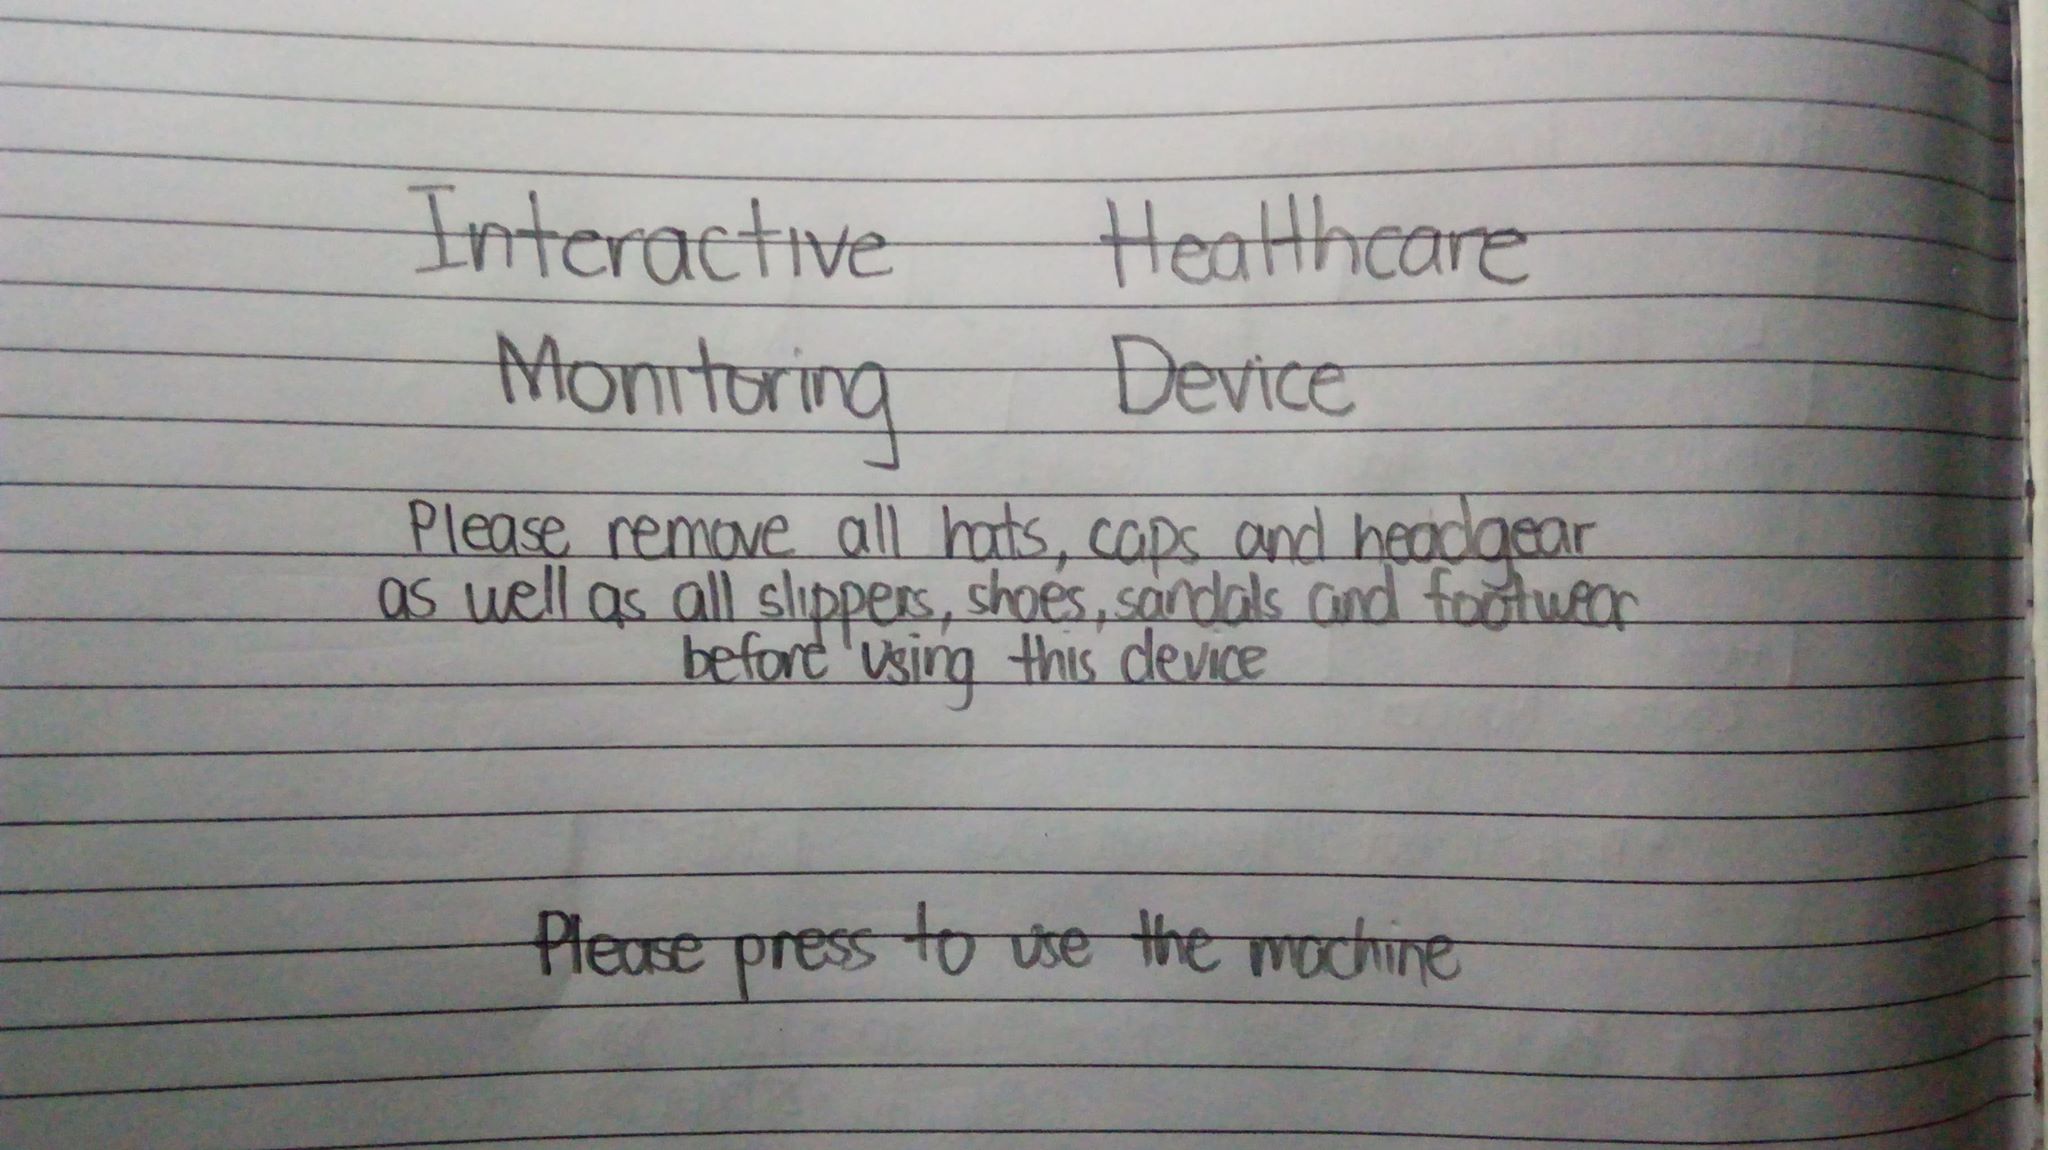 Interactive Healthcare
Monitoring Device
Please remove all hats, caps and headgear
as well as all slippers, shoes, sandals and footwear
before using this device
Please press to use the machine